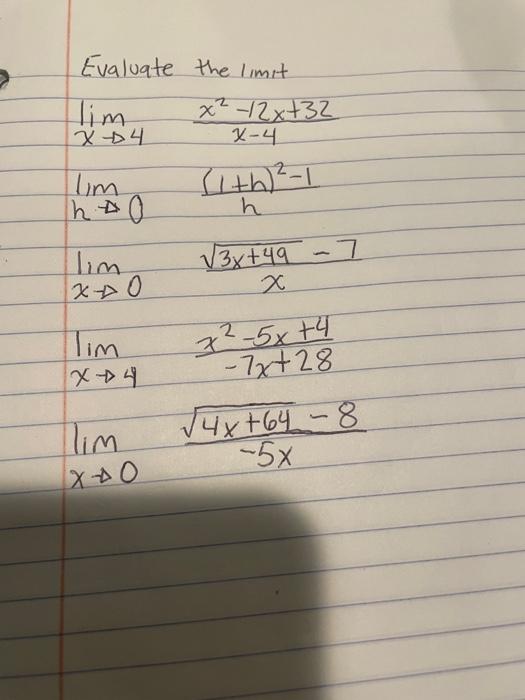 Evaluate the limit
lim x→4 x²-12x+32 / x-4
lim h→0 (1+h)²-1 / h
lim x→0 √3x+49 - 7 / x
lim x→4 x²-5x+4 / -7x+28
lim x→0 √4x+64 - 8 / -5x